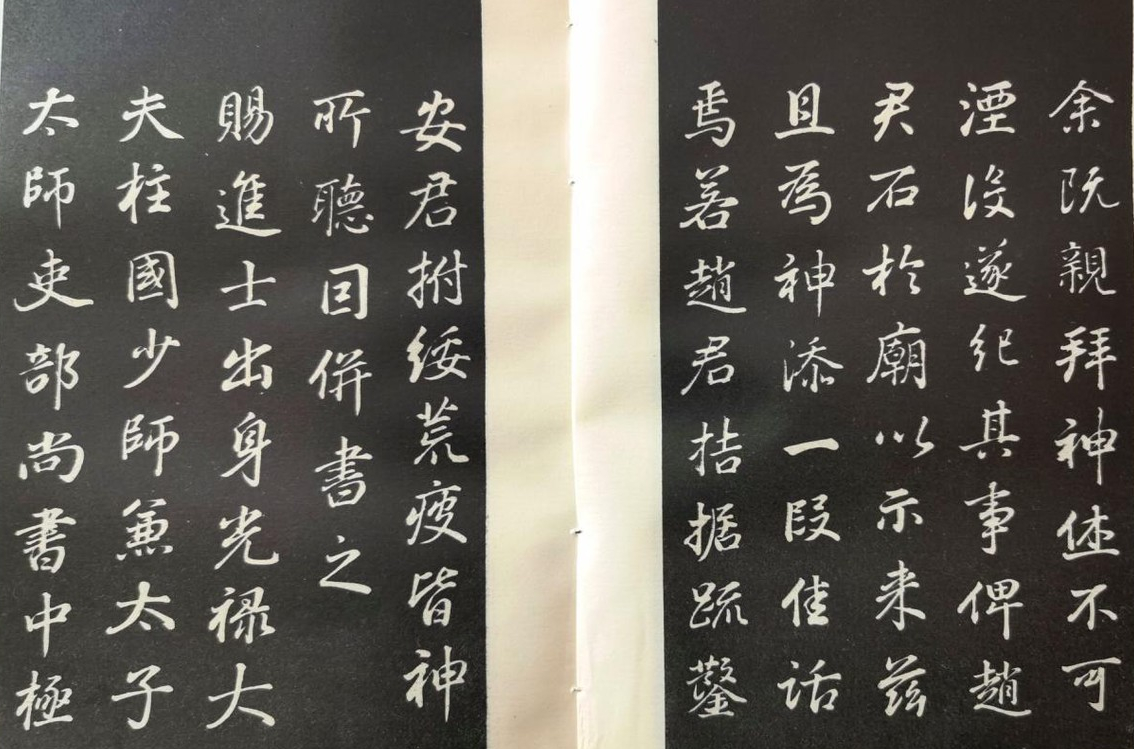 余既親拜神休不可
湮沒遂紀其事俾趙
君石於廟以示来茲
且為神添一段佳話
焉若趙君拮据疏鑿
安君拊綏荒瘦皆神
所聽囙併書之
賜進士出身光禄大
夫柱國少師兼太子
太師吏部尚書中極